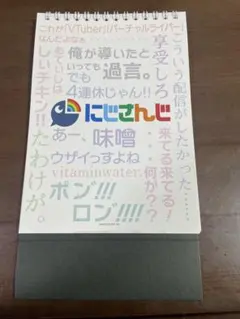 これが「VTuber」「バーチャルライバー」
なんだよな
俺が導いたと
いっても
でも
過言。
4連休じゃん!!
享受しろ
こういう配信がしたかった……
おもしれー
しいチキン!!
たわけが。
にじさんじ
あー、味噌
ウザイっすよね
vitaminwater.
ポン!!!
ロン!!!!
来てる来てる!
何か??